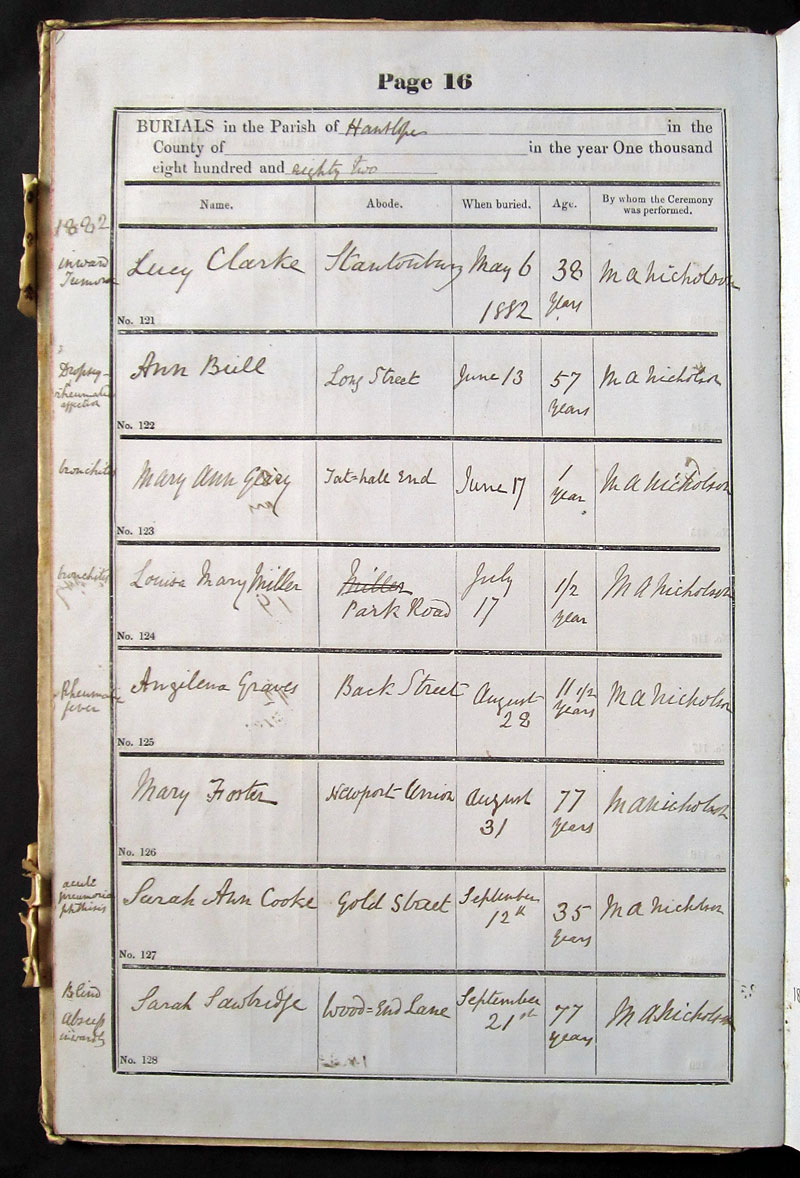 Page 16
BURIALS in the Parish of Hanslope in the
County of in the year One thousand
eight hundred and eighty two
Name. Abode. When buried. Age. By whom the Ceremony
was performed.
1882
inward
Tumour
Lucy Clarke Stantonbury May 6 38 M A Nicholson
1882 years
No. 121
Dropsy
rheumatic
affection
Ann Bull Long Street June 13 57 M A Nicholson
years
No. 122
bronchitis
Mary Ann Geary Tat=hall End June 17 1 M A Nicholson
year
No. 123
bronchitis
Louisa Mary Miller Miller July 1/2 M A Nicholson
Park Road 17 year
No. 124
Rheumatic
fever
Angilena Graves Back Street August 11 1/2 M A Nicholson
28 years
No. 125
Mary Foster Newport Union August 77 M A Nicholson
31 years
No. 126
acute
pneumonia
phthisis
Sarah Ann Cooke Gold Street September 35 M A Nicholson
12th years
No. 127
Blind
Abscess
inwardly
Sarah Sawbridge Wood=End Lane September 77 M A Nicholson
21st years
No. 128